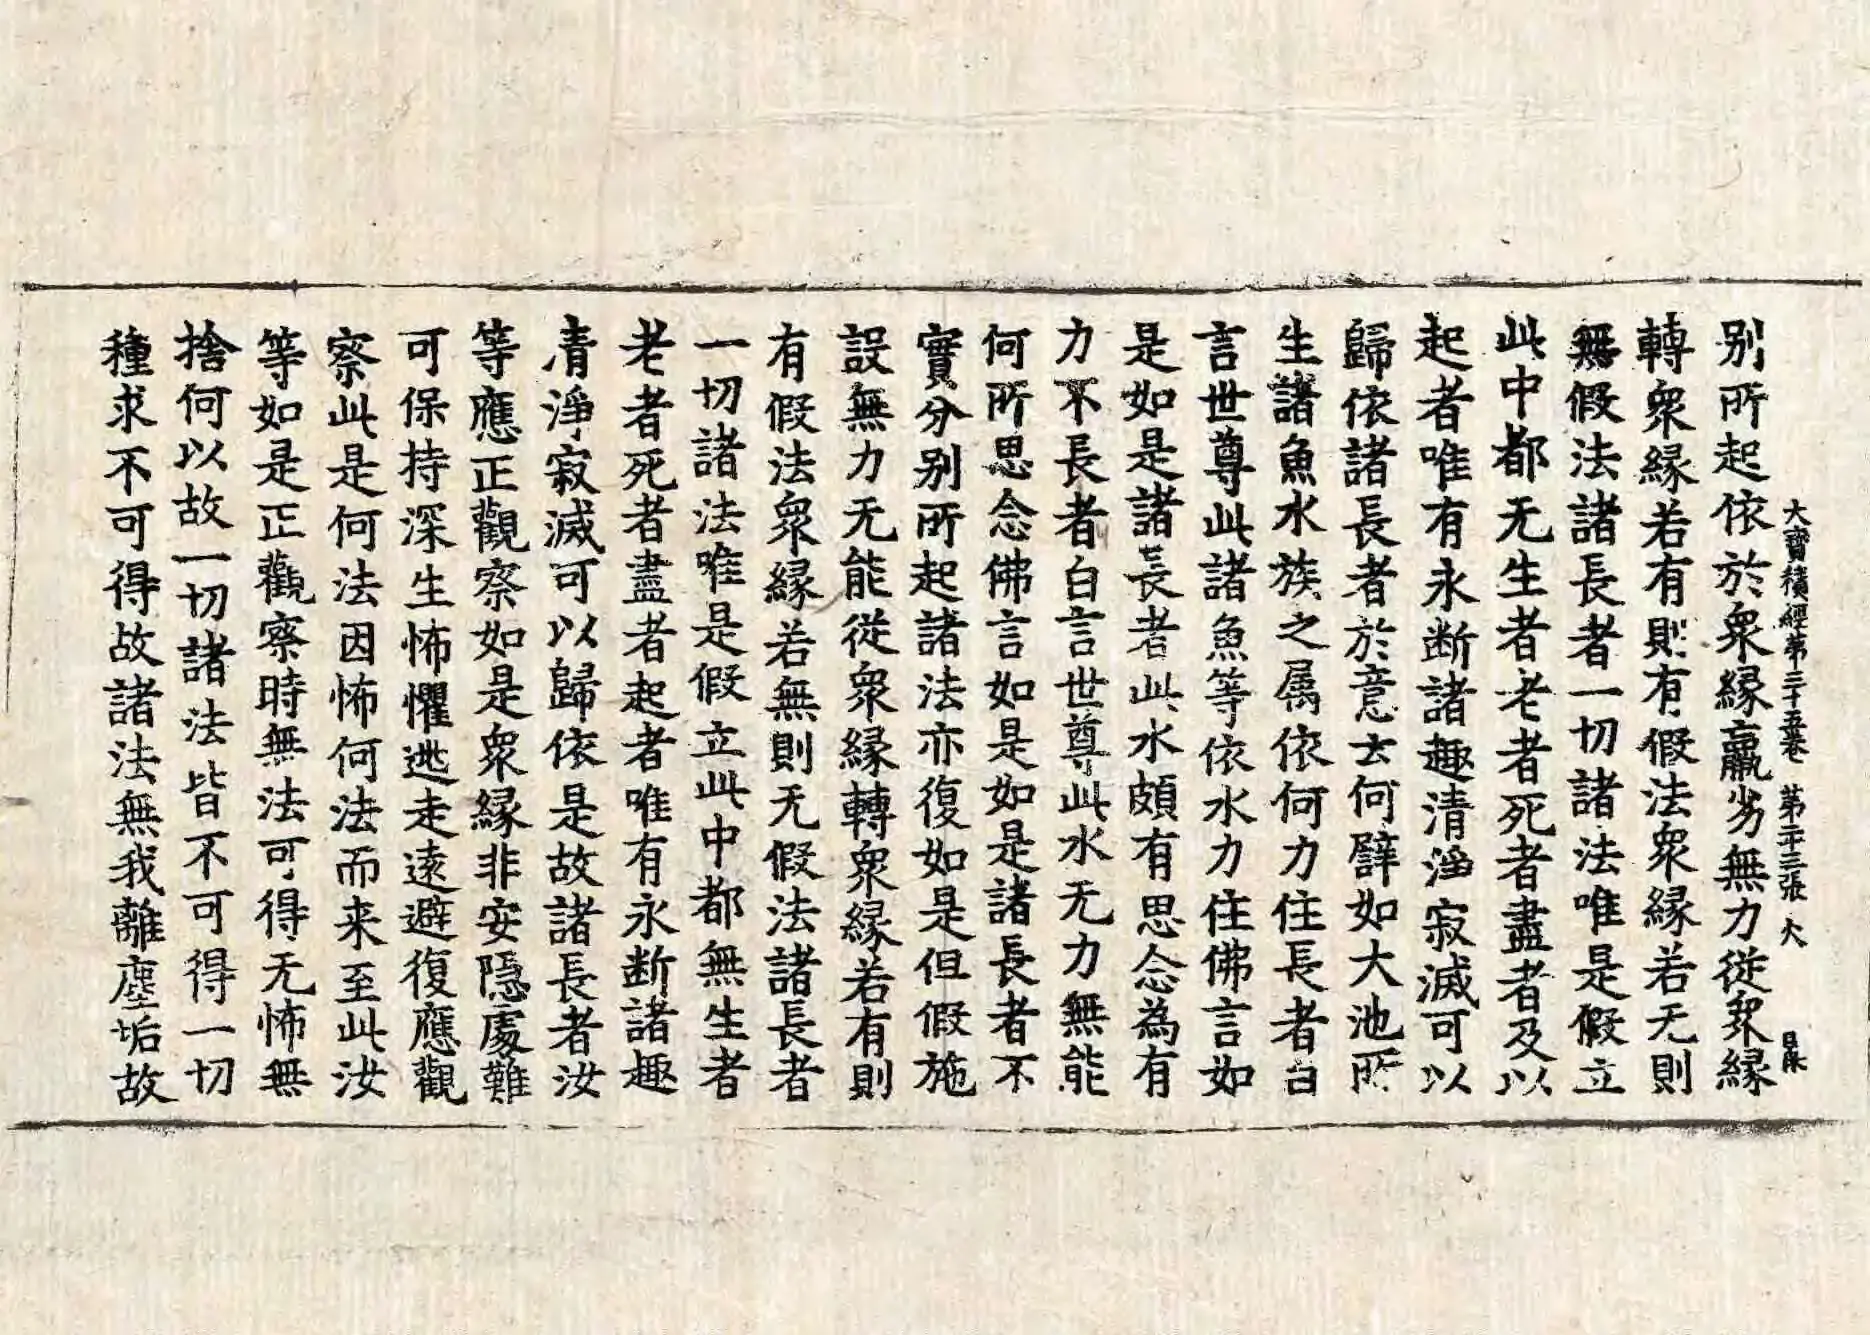 大寶積經第三十五卷 第二十三張 大
别所起依於眾緣羸劣無力從眾緣
轉眾緣若有則有假法眾緣若无則
無假法諸長者一切諸法唯是假立
此中都无生者老者死者盡者及以
起者唯有永断諸趣清淨寂滅可以
歸依諸長者於意云何譬如大池所
生諸魚水族之属依何力住長者白
言世尊此諸魚等依水力住佛言如
是如是諸長者此水頗有思念為有
力不長者白言世尊此水无力無能
何所思念佛言如是如是諸長者不
實分别所起諸法亦復如是但假施
設無力无能從眾緣轉眾緣若有則
有假法眾緣若無則无假法諸長者
一切諸法唯是假立此中都無生者
老者死者盡者起者唯有永断諸趣
清淨寂滅可以歸依是故諸長者汝
等應正觀察如是眾緣非安隱處難
可保持深生怖懼逃走遠避復應觀
察此是何法因怖何法而来至此汝
等如是正觀察時無法可得无怖無
捨何以故一切諸法皆不可得一切
種求不可得故諸法無我離塵垢故